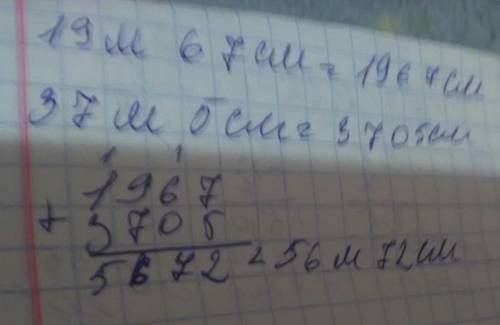 19 м 67 см = 1967 см
37 м 5 см = 3705 см
1 1
1967
+
3705
5672 = 56 м 72 см